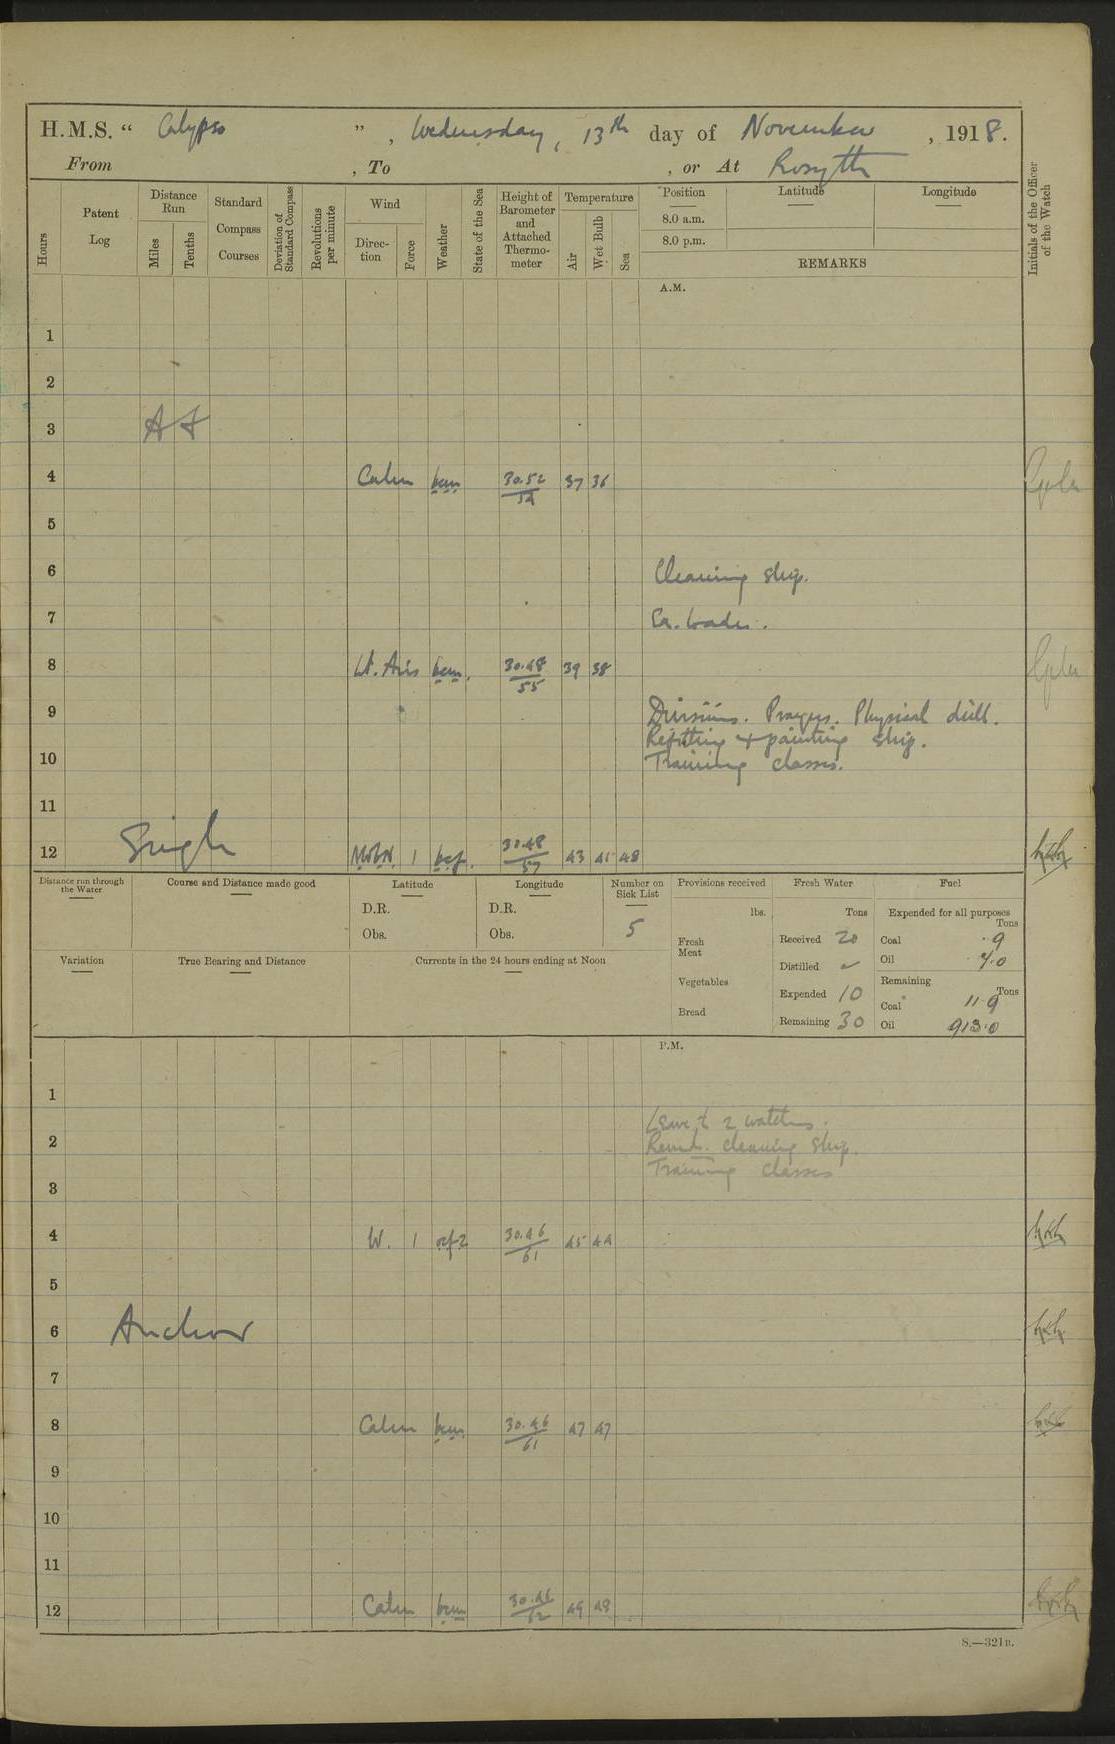 H.M.S. “ Calypso ” , Wednesday, 13th day of November , 1918.
From , To , or At Rosyth
Hours
Patent Log
Distance Run
Miles
Tenths
Standard Compass Courses
Deviation of Standard Compass
Revolutions per minute
Wind
Direc-tion
Force
Weather
State of the Sea
Height of Barometer and Attached Thermo-meter
Temperature
Air
Wet Bulb
Sea
Position
Latitude
Longitude
8.0 a.m.
8.0 p.m.
REMARKS
Initials of the Officer of the Watch
A.M.
1
2
3 At
4 Calm bcm 30.52/54 37 36
5
6 Cleaning ship.
7
8 Lt. Airs bcm. 30.48/55 39 38
9 Divisions. Prayers. Physical drill.
Refitting + painting ship.
10 Training classes.
11
12 Single 1 bcf. 30.48/57 43 41 48
Distance run through the Water
Course and Distance made good
Latitude
D.R.
Obs.
Longitude
D.R.
Obs.
Number on Sick List
5
Provisions received
lbs.
Fresh Meat
Vegetables
Bread
Fresh Water
Tons
Received 20
Distilled
Expended 10
Remaining 30
Fuel
Expended for all purposes
Tons
Coal .9
Oil 7.0
Remaining
Tons
Coal 119
Oil 913.0
Variation
True Bearing and Distance
Currents in the 24 hours ending at Noon
P.M.
1
Leave to 2 watches.
2 cleaning ship.
Training classes
3
4 W. 1 30.46/61 45 44
5
6 Anchor
7
8 Calm bcm 30.46/61 47 47
9
10
11
12 Calm bcm 30.46/62 49 48
S.—321B.